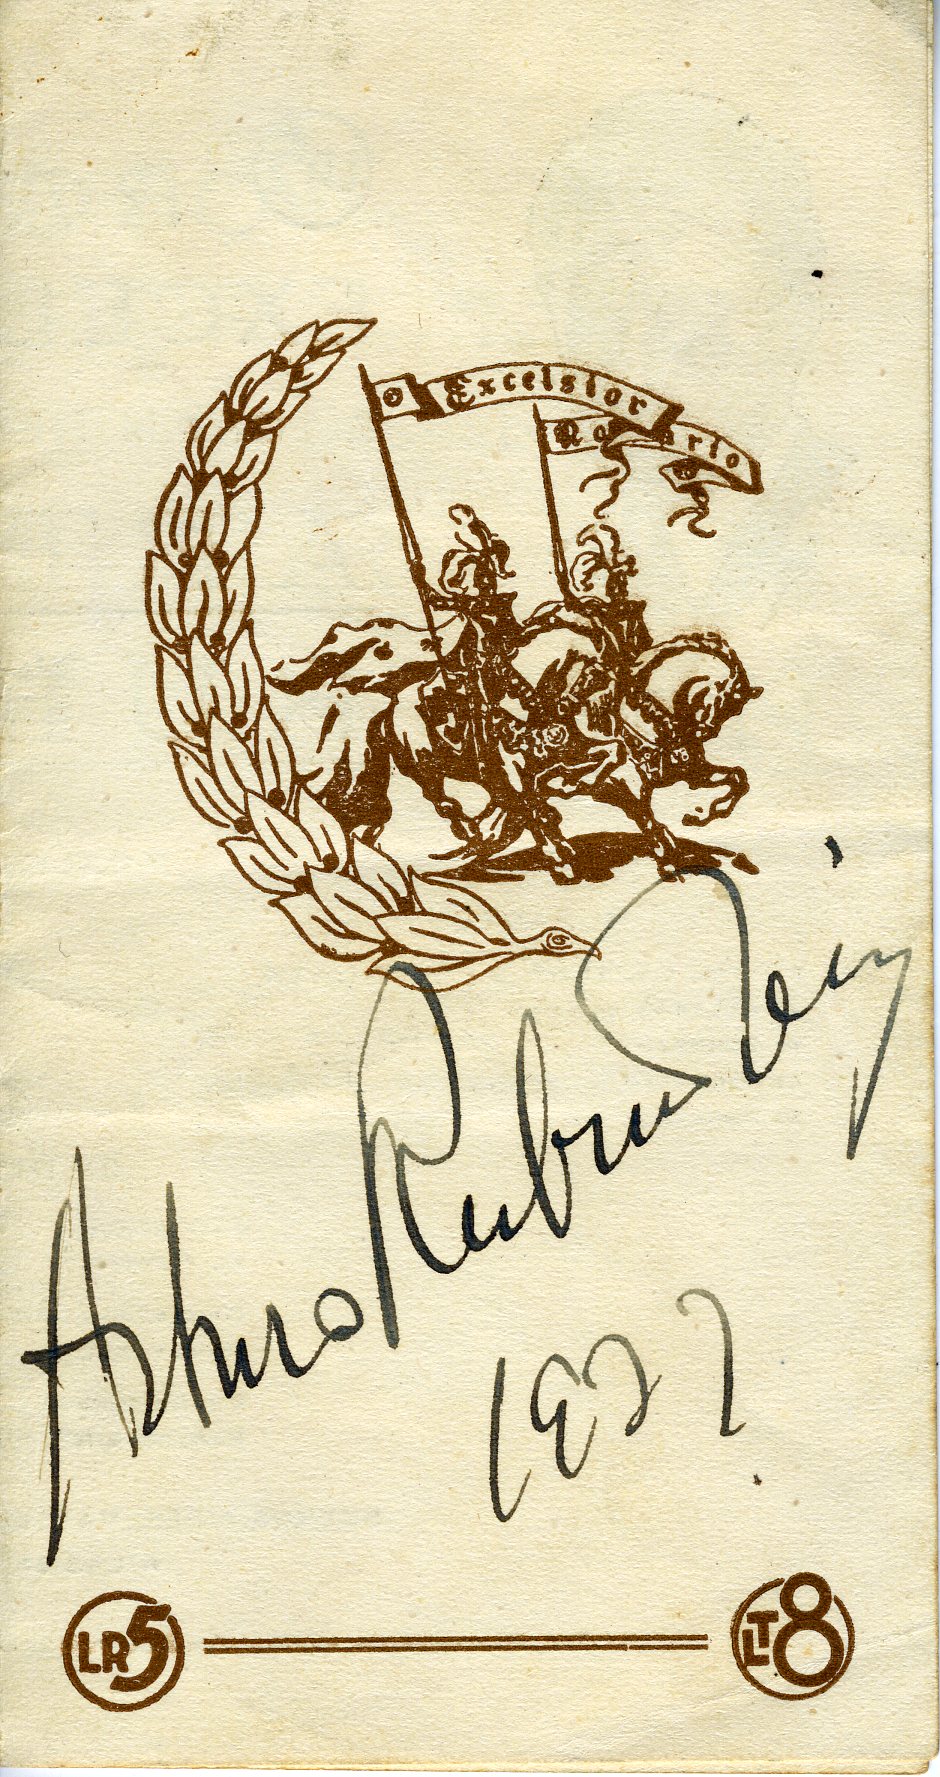 Excelsior
Rosario
Arturo Rubinstein
1937
LR5
LT8